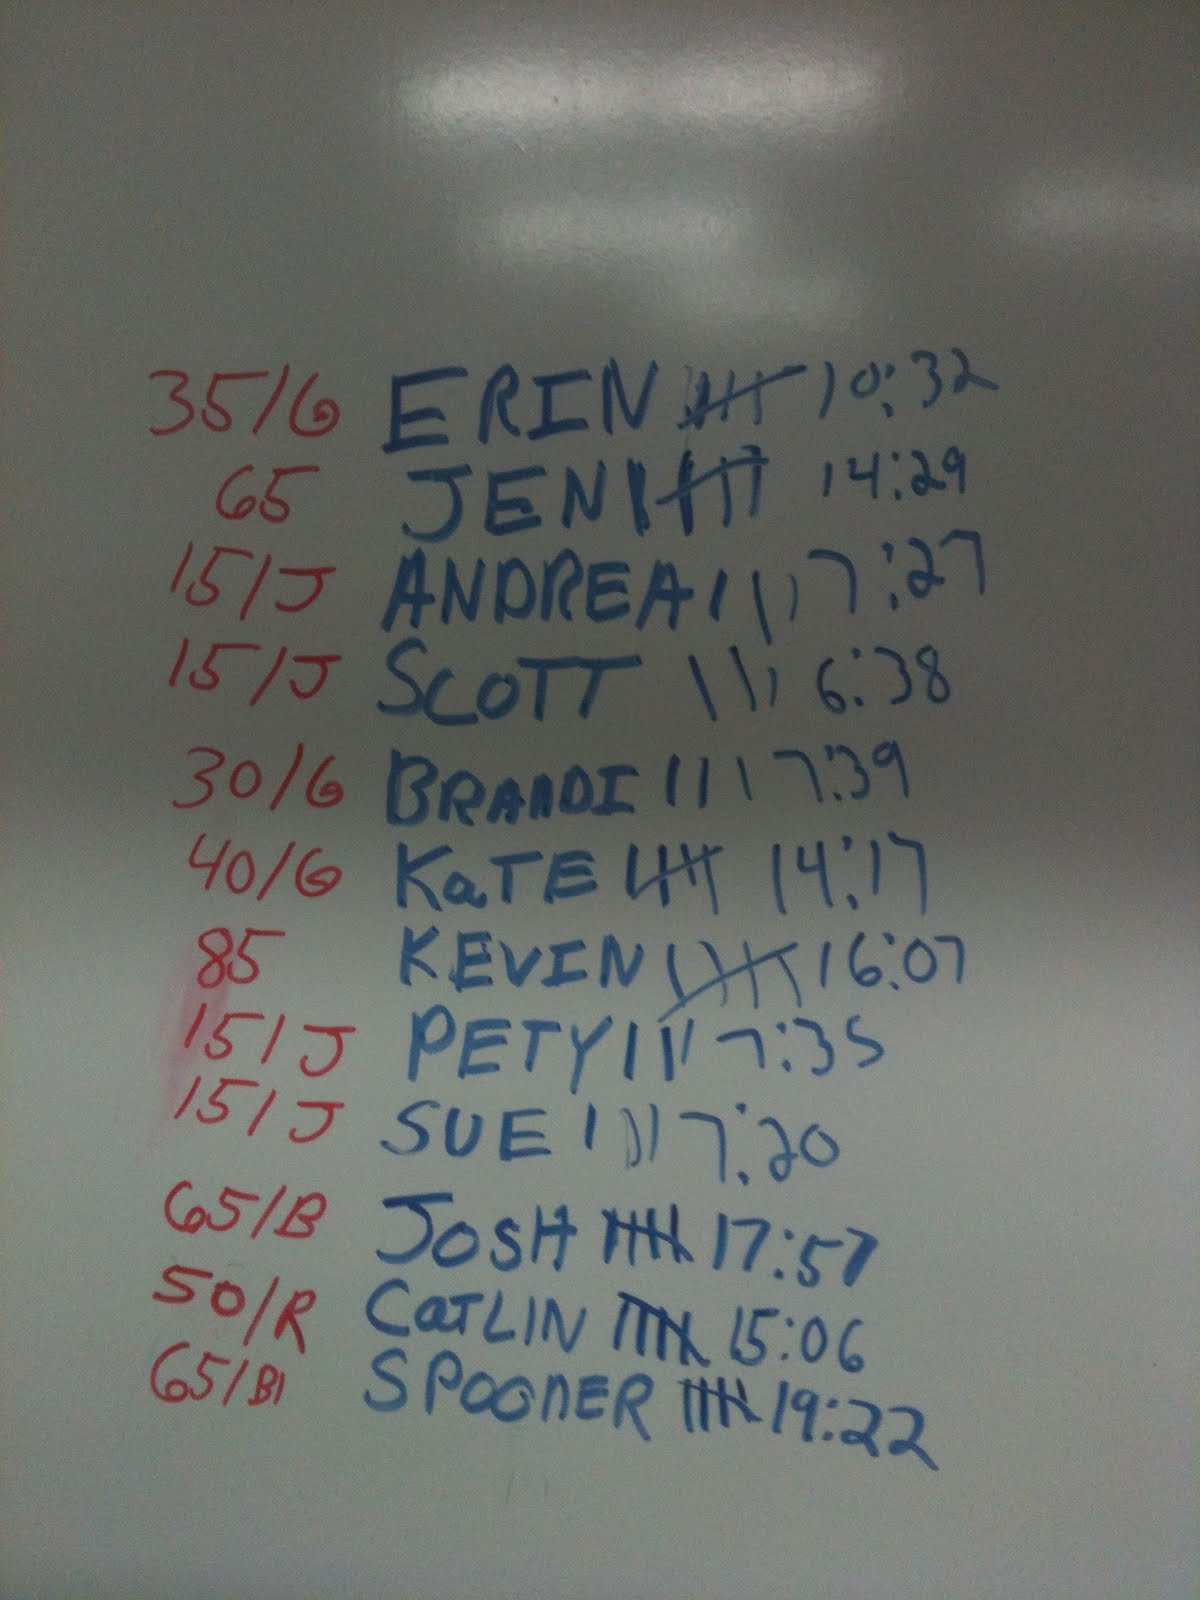 35/G ERIN 卌 10:32
65 JEN 卌 14:29
15/J ANDREA ||| 7:27
15/J SCOTT ||| 6:38
30/G BRANDI ||| 7:39
40/G KaTE 卌 14:17
85 KEVIN 卌 16:07
15/J PETY ||| 7:35
15/J SUE ||| 7:20
65/B JOSH 卌 17:57
50/R CaTLIN 卌 15:06
65/Bl SPOONER 卌 19:22